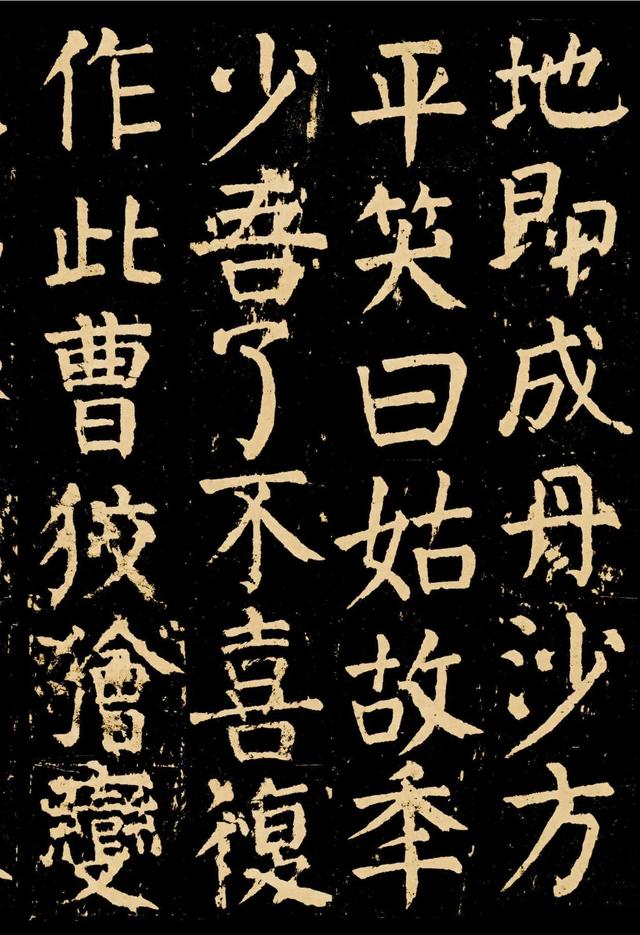 地即成丹沙方
平笑曰姑故年
少吾了不喜復
作此曹狡獪變